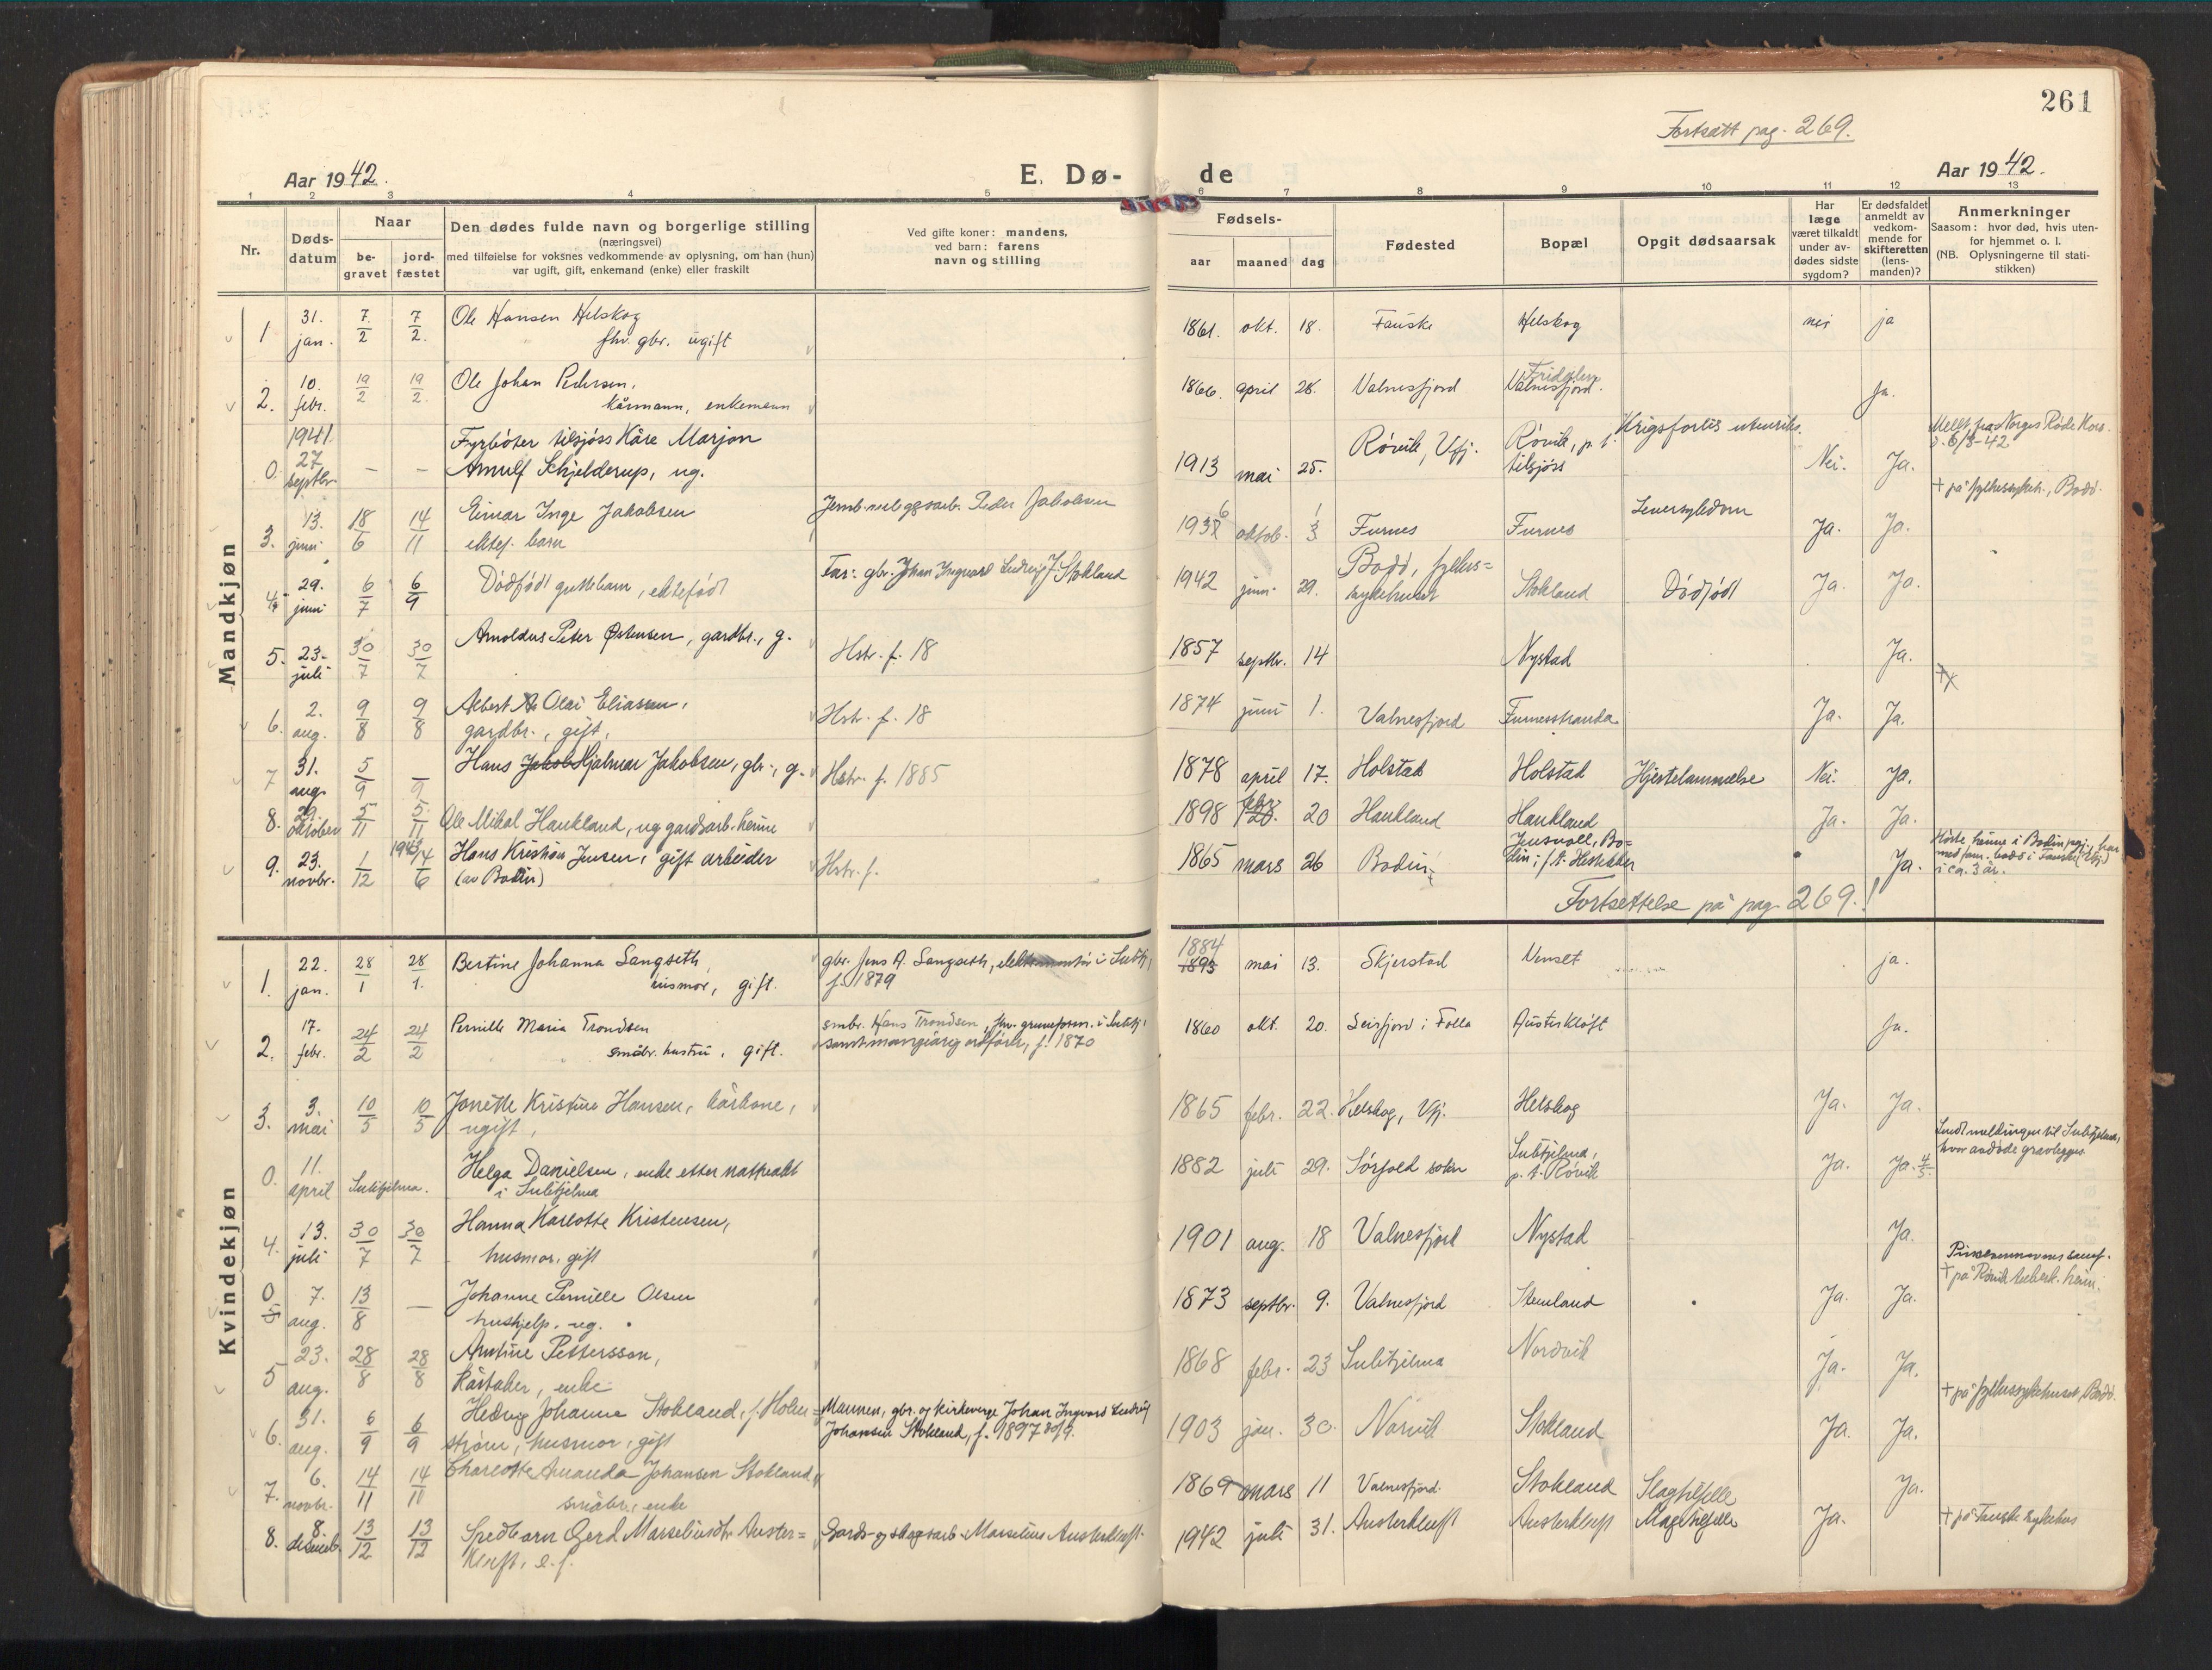 261
Fortsatt pag. 269.
Aar 1942.
E. Dø-
de
Aar 1942.
1 2 3 4 5 6 7 8 9 10 11 12 13
Nr.
Døds-
datum
Naar
be-
gravet
jord-
fæstet
Den dødes fulde navn og borgerlige stilling
(næringsvei)
med tilføielse for voksnes vedkommende av oplysning, om han (hun)
var ugift, gift, enkemand (enke) eller fraskilt
Ved gifte koner: mandens,
ved barn: farens
navn og stilling
Fødsels-
aar maaned dag
Fødested
Bopæl
Opgit dødsaarsak
Har
læge
været tilkaldt
under av-
dødes sidste
sygdom?
Er dødsfaldet
anmeldt av
vedkom-
mende for
skifteretten
(lens-
manden)?
Anmerkninger
Saasom: hvor død, hvis uten-
for hjemmet o. l.
(NB. Oplysningerne til stati-
stikken)
Mandkjøn
1 31. jan. 7/2 7/2. Ole Hansen Helskog
fhv. gbr. ugift
1861. okt. 18. Fauske Helskog nei ja
2. 10. febr. 19/2 19/2. Ole Johan Pedersen,
kårmann, enkemann
1866. april 28. Valnesfjord Valnesfjord. Ja.
0. 1941. 27. septbr. – – Fyrbøter tilsjøss Kåre Marjon
Arnulf Schjelderup, ug.
1913 mai 25. Rörvik, Vfj. Rörvik, p. t.
tilsjöss
Krigsforlis utenriks. Nei. Ja. Meldt fra Norges Røde Kors
3. 13. juni 18/6 14/11 Einar Inge Jakobsen
ektef. barn
Peder Jakobsen
oktob. Furnes Furnes Leversykdom Ja. Ja. + på fylkessykeh., Bodø.
4. 29. juni 6/7 6/9 Dödfödt guttebarn, ektefödt
Far: gbr. Johan Ingvard Ludvig J. Stokland
1942 juni 29. Bodö, fylkes=
sykehuset
Stokland Dödfödt Ja. Ja.
5. 23. juli 30/7 30/7 Arnoldus Peter Østensen, gardbr., g.
Hstr. f. 18
1857 septbr. 14 Nystad Ja.
6. 2. aug. 9/8 9/8 Albert Olai Eliassen,
gardbr., gift,
Hstr. f. 18
1874 juni 1. Valnesfjord Furnesstranda Ja. Ja.
7 31. aug. 5/9 –/9 Hans Jakob Hjalmar Jakobsen, gbr., g.
Hstr. f. 1885
1878 april 17. Holstad Holstad Hjertelammelse Nei. Ja.
8. 29. oktober 5/11 5/11 Ole Mikal Haukland, ug gardsarb. heime
1898 febr. 20 Haukland Haukland Ja. Ja.
9. 23. novbr. 1/12 1943 14/6 Hans Kristian Jensen, gift arbeider
(av Bodin)
Hstr. f.
1865 mars 26 Bodin Jensvoll, Bo=
din
Ja. i ca. 3 år.
Fortsettelse på pag. 269.!
Kvindekjøn
1. 22. jan. 28/1 28/1. Bertine Johanna Langseth,
husmor, gift.
gbr. Jens A. Langseth,
f. 1879
1884
1893 mai 13. Skjerstad Venset ja.
2. 17. febr. 24/2 24/2 Pernille Maria Trondsen
småbr. hustru, gift.
smbr. Hans Trondsen, fhv.
samt mangeårig ordfører, f. 1870
1860 okt. 20. Leirfjord i Folla Austerkløft Ja.
3. 3. mai 10/5 10/5 Jonette Kristine Hansen, kårkone,
ugift,
1865 febr. 22. Helskog, Vfj. Helskog Ja. Ja.
0. 11. april Sulitjelma. Helga Danielsen, enke etter nattvakt
i Sulitjelma
1882 juli 29. Sörfold sokn Sulitjelma,
p. t. Rörvik
Ja. Ja. 4/5. Sendt meldingen til Sulitjelma,
hvor avdöde gravlegges.
4. 13. juli 30/7 30/7 Hanna Karlotte Kristensen,
husmor, gift
1901 aug. 18 Valnesfjord Nystad Ja.
0 5 7. aug. 13/8 – Johanne Pernille Olsen
hushjelp, ug.
1873 septbr. 9. Valnesfjord Stemland Ja. Ja. + på Rörvik tuberk. heim.
5 23. aug. 28/8 28/8 Antine Pettersson,
kårtaker, enke
1868 febr. 23 Sulitjelma Nordvik Ja. Ja.
6. 31. aug. 6/9 6/9 Hedvig Johanna Stokland, f. Holm=
strøm, husmor, gift
Mannen, gbr. og kirkeverge Johan Ingvard Ludvig
Johansen Stokland, f. 1897
1903 jan. 30. Narvik Stokland Ja. Ja. + på fylkessykehuset, Bodø.
7. 6. novbr. 14/11 14/11 Charlotte Amanda Johansen Stokland,
småbr., enke
1869 mars 11 Valnesfjord. Stokland Slagtilfelle Ja.
8. 8. desemb. 13/12 13/12 Spedbarn Gerd Marseliusdtr. Auster=
kluft, e. f.
Gards- og skogsarb. Marselius Austerkluft.
1942 juli 31. Austerkluft Austerkluft Ja. + på Fauske sykehus